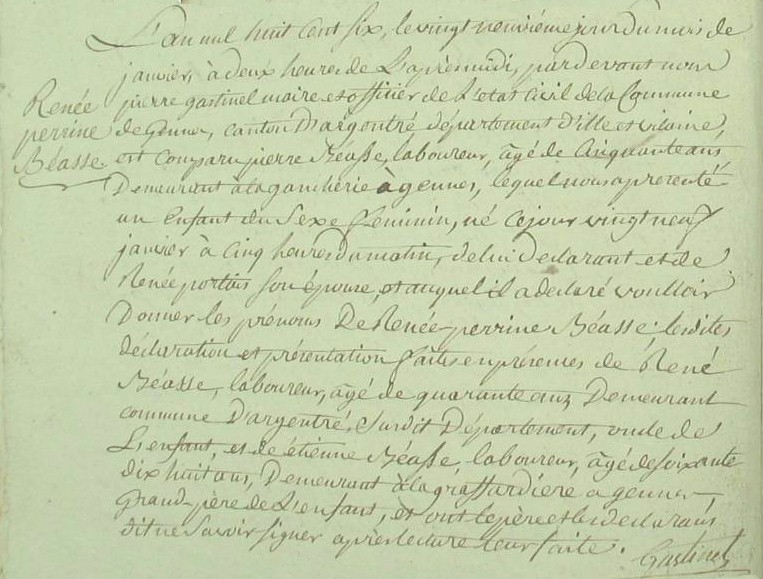 L'an mil huit cent six, le vingt neuvième jour du mois de
janvier, à deux heures de L'après midi, pardevant nous
Renée
perrine
Béasse
pierre gastinel maire et officier de L'état civil de la Commune
de Gennes, canton D'argentré, département D'ille et vilaine,
est Comparu pierre Béasse, laboureur, âgé de Cinquante ans
Demeurant à la gaucherie à gennes, lequel nous a présenté
un Enfant du Sexe feminin, né Cejour vingt neuf
janvier à Cinq heures Du matin, de lui Déclarant et de
Renée portais Son épouse, et auquel il a déclaré voulloir
Donner les prénoms De Renée perrine Béasse. lesdites
déclaration et présentation faites en présences de René
Béasse, laboureur, âgé de quarante ans Demeurant
commune D'argentré, Susdit Département, oncle de
L'enfant, et de étienne Béasse, laboureur, âgé de soixante
dix huit ans, Demeurant à la graffardiere a gennes
Grand-père de L'enfant, et ont le père et les déclarans
dit ne Savoir signer après lecture leur faite.
Gastinel